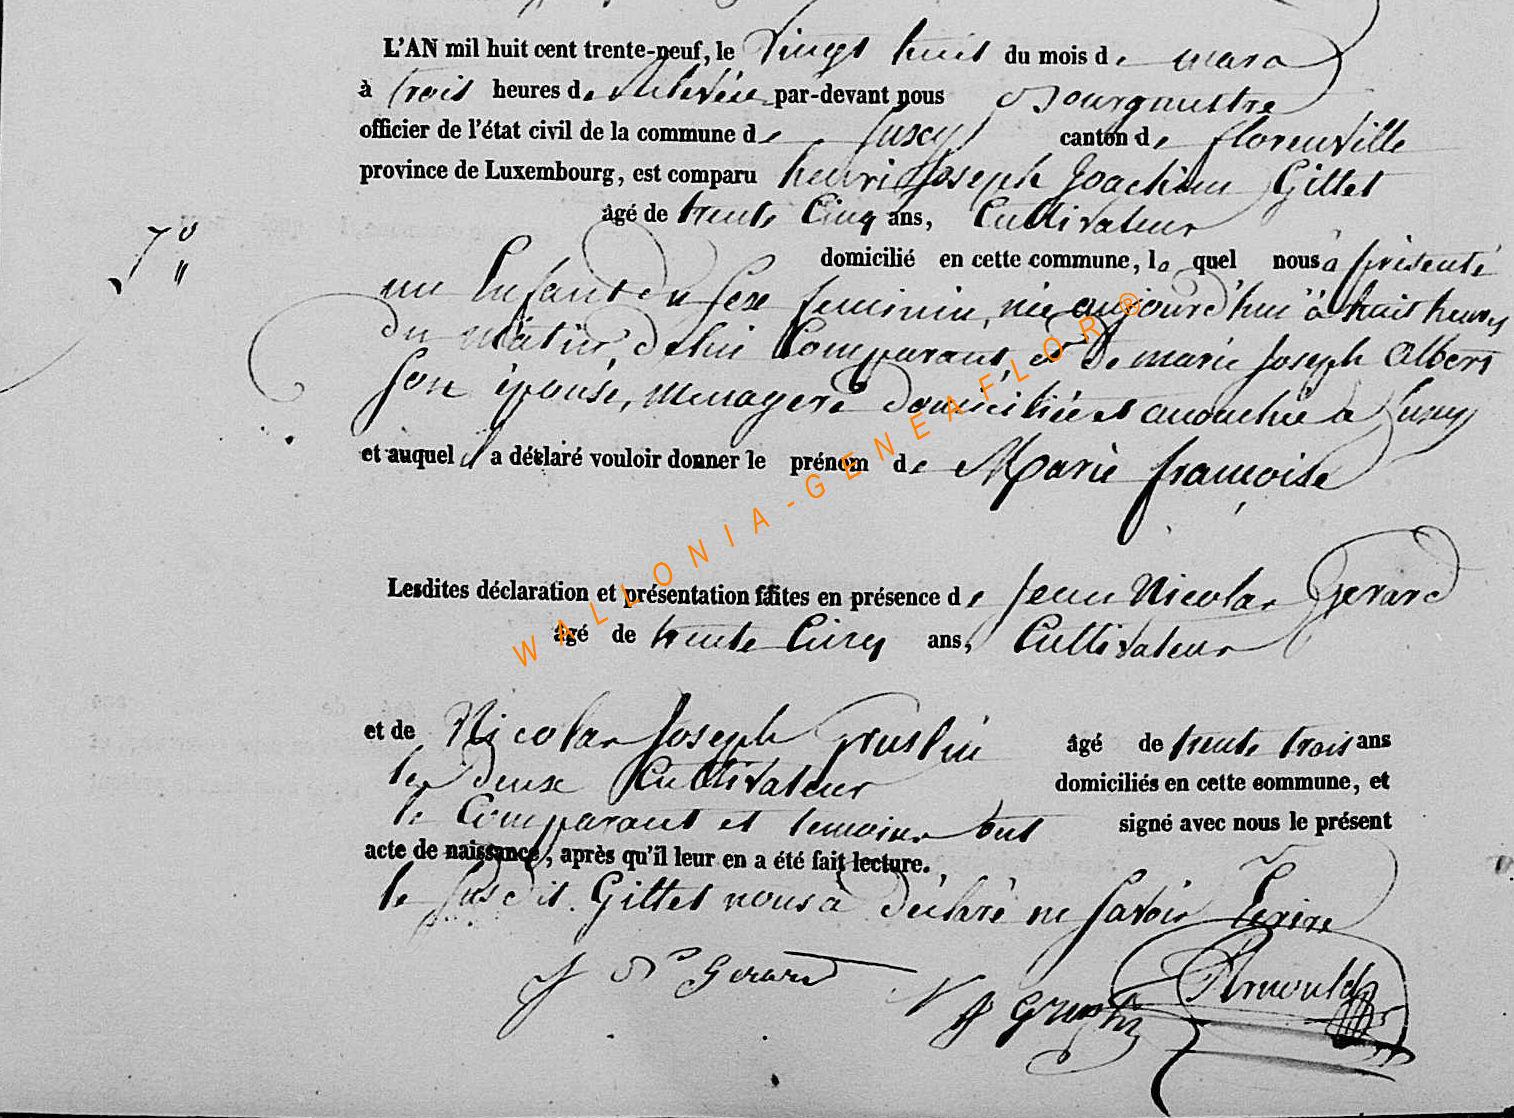 L'AN mil huit cent trente-neuf, le Vingt huit du mois de mars
à trois heures de Relevée par-devant nous Bourgmestre
officier de l'état civil de la commune de Suxcy canton de florenville
province de Luxembourg, est comparu henri Joseph Joachim Gillet
âgé de trente Cinq ans, Cultivateur
7°
domicilié en cette commune, le quel nous à présenté
un Enfant du sexe feminin, née aujourd'hui à huit heures
du Matin, de lui Comparant, et de marie Joseph Albert
son épouse, menagere domiciliée et accouchée à Suxcy
et auquel il a déclaré vouloir donner le prénom de Marie françoise
Lesdites déclaration et présentation faites en présence de Jean Nicolas Gerard
âgé de trente Cinq ans, Cultivateur
et de Nicolas Joseph Gruslin âgé de trente trois ans
les deux Cultivateur domiciliés en cette commune, et
le Comparant et temoins ont signé avec nous le présent
acte de naissance, après qu'il leur en a été fait lecture.
le susdit Gillet nous à déclaré ne savoir Ecrire
J N Gerard
N J Gruslin
Arnould
WALLONIA-GENEAFLOR®